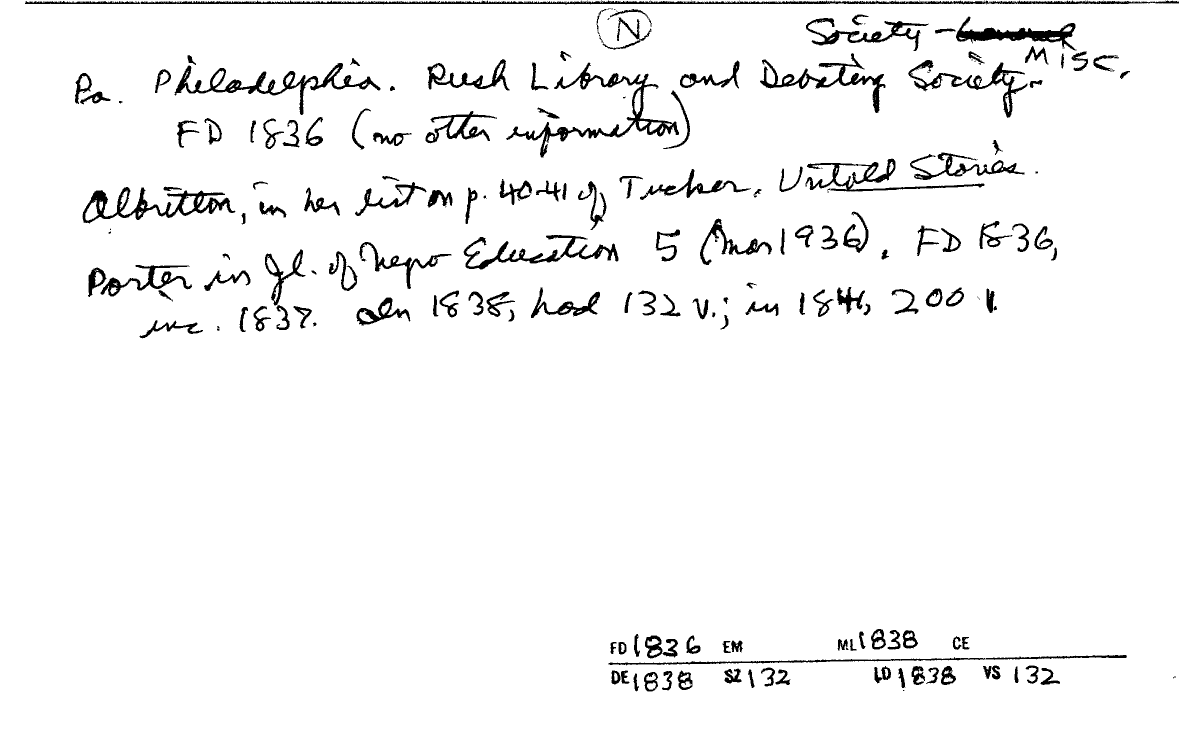 (N)
Society - General
Misc.
Pa. Philadelphia. Rush Library and Debating Society.
FD 1836 (no other information)
Albritton, in her list on p. 40-41 of Tucker, Untold Stories.
Porter in Jl. of Negro Education 5 (Mar 1936). FD 1836,
inc. 1837. In 1838, had 132 v.; in 1841, 200 v.
FD 1836 EM ML 1838 CE
DE 1838 SZ 132 LD 1838 VS 132